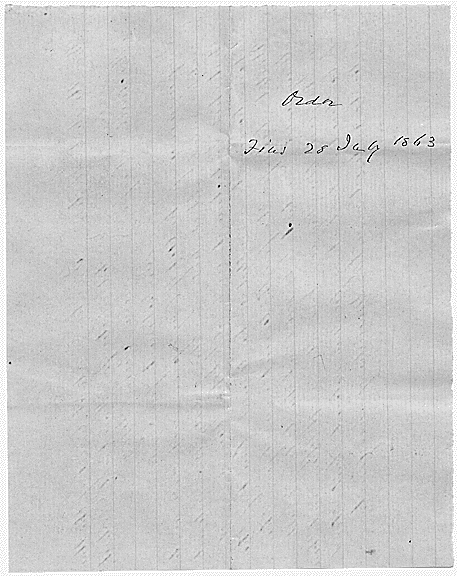 Order
Filed 28 July 1863